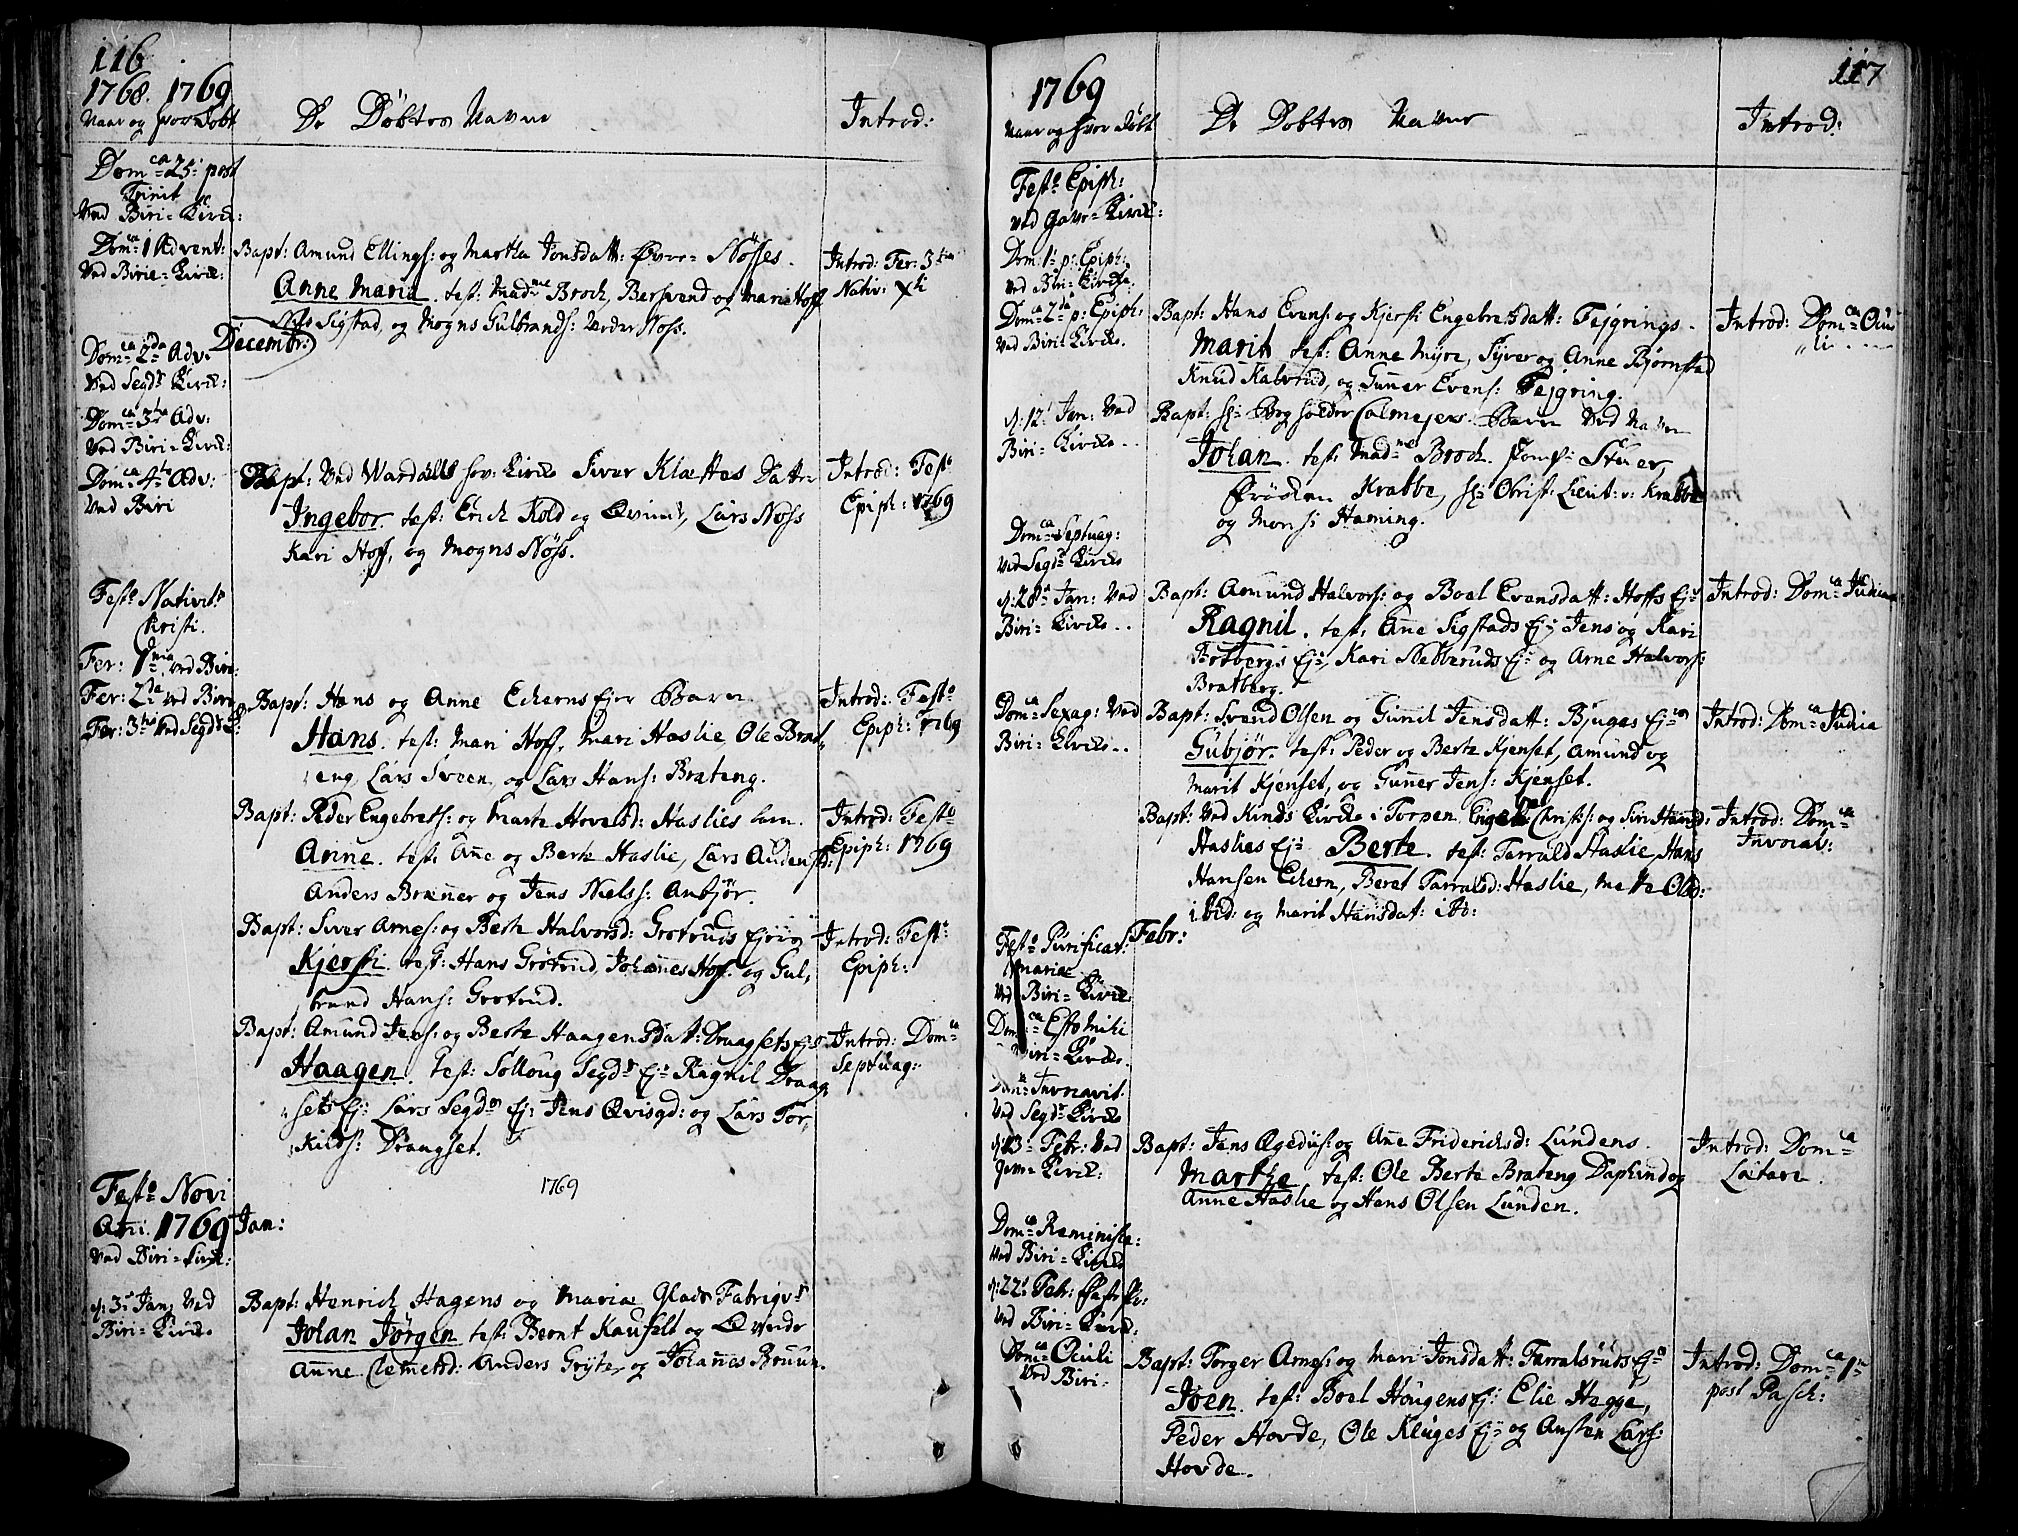 116
1768. 1769
Naar og hvor Døbt
De Døbtes Navne
Introd:
Dom:ca 25: post
Trinit
Ved Biri-Kirck:
Dom:ca 1 Advent:
Ved Birie-Kirck:
Bapt: Amund Ellings: og Martha Jonsdatt: Øvre-Nøsses.
Anne Maria. test: Mad:me Broch, Berhvend og Marie Hoff
Nils Sigstad, og Mogns Gulbrands: Nedre Nøss.
Introd: Fer: 3tia
Nativ: Xti
Decembr:
Dom:ca 2da Adv.
Ved Segd: Kirck:
Dom:ca 3tia Adv:
Ved Biri-Kirck:
Dom:ca 4ta Adv:
Ved Biri
Bapt: Ved Wardalls hov: Kircke Siver Klættes Datter
Ingebor. test: Erich Kold og Qvinde, Lars Nøss
Kari Hoff, og Mogns Nøss.
Introd: Festo
Epiph: 1769
Festo Nativit:
Kristi.
Fer: 1ma ved Biri:
Fer: 2da ved Biri
Fer: 3tia Ved Segd: K:
Bapt: Hans og Anne Eckerns Ejer Barn
Hans. test: Mari Hoff, Mari Haslie, Ole Brat-
eng, Lars Sveen, og Lars Hans: Brateng.
Introd: Festo
Epiph: 1769
Bapt: Peder Engebrets: og Marte Hovelsd: Haslies barn.
Anne. test: Añe og Berte Haslie, Lars Audenst:
Anders Bræñer og Jens Niels: Anbjør.
Introd: Festo
Epiph: 1769
Bapt: Siver Arnes: og Berte Halvorsd: Grøtruds Ejer
Kjersti. test: Hans Grøtrud, Johañes Hof. og Gul,
brand Hans: Grøtrud.
Introd: Festo
Epiph:
Bapt: Amund Jens: og Berte Haagensdat: Draagsets Ej:
Haagen. test: Solloug Segd: Ej: Ragnil Draag
sets Ej: Lars Segd: Ej: Jens Qvisgd: og Lars Tor,
kilds: Draagset.
Introd: Dom:ca
Septuag:
1769
Festo Novi
Añi. 1769 Jan:
Ved Biri-Kirck:
d: 3 Jan: Ved
Biri-Kircke
Bapt: Henrich Hagens og Mariæ Glads Fabriqv:
Johan Jørgen test: Bernt Kaufelt og Qvinde
Añe Clemetsd: Anders Gryte, og Johañes Bruun.
117
1769
Naar og hvor Døbt
De Døbtes Navne
Introd:
Festo Epiph:
Ved Gave-Kirck:
Dom: 1 p: Epiph:
ved Biri-Kircke.
Dom:ca 2da p: Epiph:
Ved Biri Kircke.
Bapt: Hans Evens: og Kjersti Engebretsdatt: Fejgrings.
Marit test: Anne Myre, Syver og Anne Bjørnstad
Knud Kalvrud, og Guñer Evens: Fejgring.
Introd: Dom:ca Ocu
li
d: 12 Jan: Ved
Biri-Kircke
Bapt: Hr: Bergholder Calmejers Barn Ved Navn
Johan. test: Mad:me Broch. Jomf: Stuer,
Frøcken Krabbe, Hr: Obrist: Lieut: v: Krabbe
og Mons: Haming.
Dom:ca Septuag:
Ved Segd: Kircke
d: 28 Jan: Ved
Biri-Kircke
Bapt: Amund Halvors: og Boel Evensdatt: Hoffs Ej:
Ragnil. test: Añe Sigstads Ej: Jens og Kari
Bratbergs Ej: Kari Nebberuds Ej: og Arne Halvors:
Bratberg.
Introd: Dom:ca Judica
Dom:ca Sexag: Ved
Biri-Kircke
Bapt: Svend Olsen og Gunil Jensdatt: Bjuges Ej:
Gubjør. test: Peder og Berte Kjenset, Amund og
Marit Kjenset, og Guñer Jens: Kjenset.
Introd: Dom:ca Judica
Bapt: Ved Kinds Kircke i Torpen Engebret Christ: og Siri Hansd:
Haslies Ej: Berte. test: Tarrald Haslie, Hans
Hansen Eckern, Beret Tarralsd: Haslie, Mette Olsd:
ibid: og Marit Hansdat: ibd:
Introd: Dom:ca
Invocav:
Febr:
Festo Purificat:
Mariæ
Ved Biri-Kirck:
Dom:ca Esto Mihi
Biri-Kircke.
Dom:ca Invocavit
Ved Segd: Kircke
d: 13 Febr: Ved
Gave Kirck:
Bapt: Jens Egedius: og Añe Friderichsd: Lundens.
Marthe test: Ole Berte Brateng Daphind og
Anne Haslie og Hans Olsen Lunden.
Introd: Dom:ca
Lætare.
Dom:ca Reminisce:
Ved Biri-Kircke
d: 22 Febr:
Ved Biri-Kirck:
Dom:ca Oculi
Ved Biri-
Bapt: Torger Arnes: og Mari Jonsdatt: Tarralsruds Ej:
Joen. test: Boel Haugens Ej: Elie Hegge,
Peder Hovde, Ole Kluges Ej: og Ansten Lars:
Hovde.
Introd: Dom:ca 1
post Pasch: